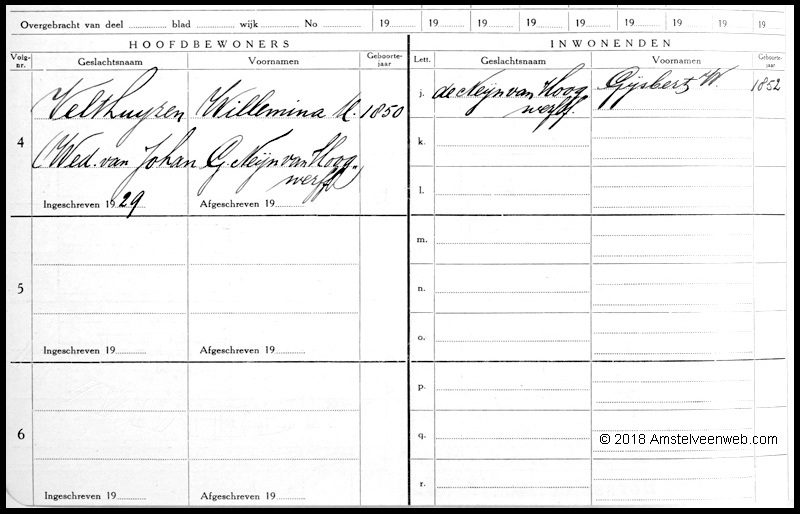 Overgebracht van deel ........ blad ........ wijk ........ No ........ 19.... 19.... 19.... 19.... 19.... 19.... 19.... 19....
HOOFDBEWONERS
Volg-nr. Geslachtsnaam Voornamen Geboorte-jaar
4
Velthuyzen Willemina M. 1850
(Wed. van Johan G. Neijn van Hoog-
werff)
Ingeschreven 1929 Afgeschreven 19........
5
Ingeschreven 19........ Afgeschreven 19........
6
Ingeschreven 19........ Afgeschreven 19........
INWONENDEN
Lett. Geslachtsnaam Voornamen Geboorte-jaar
j. de Neijn van Hoog Gijsbert W. 1852
werff.
k.
l.
m.
n.
o.
p.
q.
r.
© 2018 Amstelveenweb.com